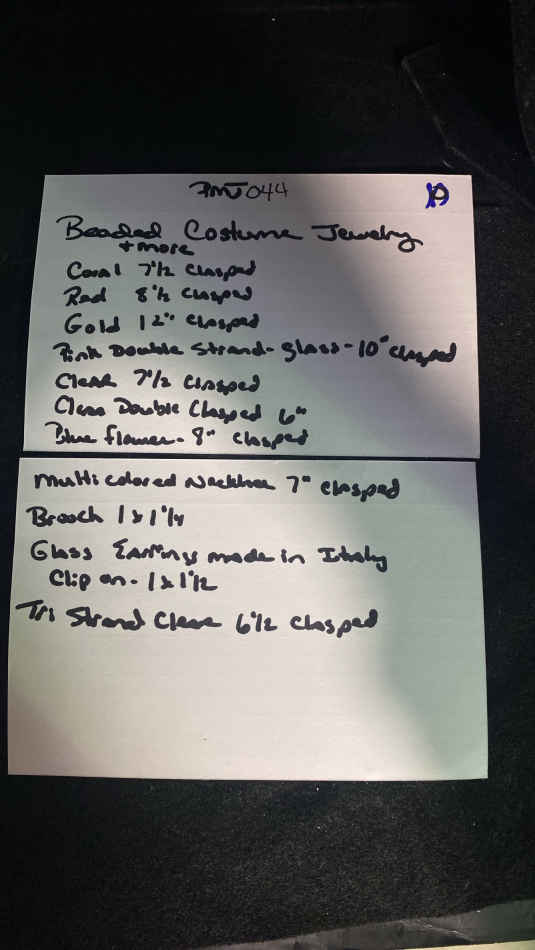 PMJ 044
Beaded Costume Jewelry
+ more
Coral 7 1/2 clasped
Red 8 1/2 clasped
Gold 12" clasped
Pink Double Strand - glass - 10" clasped
Clear 7 1/2 clasped
Clear Double Clasped 6"
Blue flower - 8" clasped
Multi colored Necklace 7" clasped
Brooch 1 x 1 1/4
Glass Earrings made in Italy
Clip on - 1 x 1 1/2
Tri Strand Clear 6 1/2 clasped